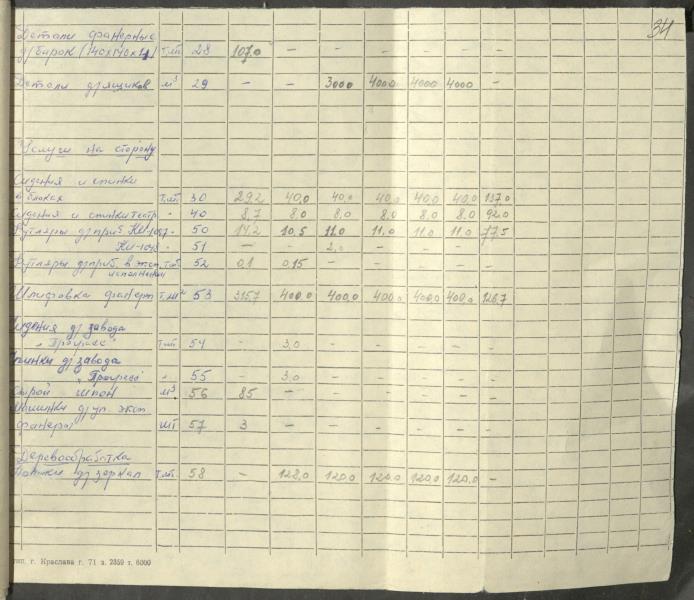 34
Детали фанерные
д/бирок (140х140х4) т.шт 28 107,0 – – – – – –
Детали д/ящиков м³ 29 – – 3000 4000 4000 4000 –
Услуги на сторону
Сидения и спинки
в блоках т.шт. 30 29,2 40,0 40,0 40,0 40,0 40,0 137,0
Сидения и спинки театр - 40 8,7 8,0 8,0 8,0 8,0 8,0 92,0
Футляры д/приб КИ-1087 - 50 14,2 10,5 11,0 11,0 11,0 11,0 77,5
- 51 – – 2,0 – – – –
Футляры д/приб. в эксп. т.шт. 52 0,1 0,15 – – – – –
исполнении
Шлифовка фанеры т.м² 53 315,7 400,0 400,0 400,0 400,0 400,0 126,7
Сидения д/завода
"Прогресс" т.шт. 54 – 3,0 – – – – –
Спинки д/завода
"Прогресс" - 55 – 3,0 – – – – –
Сырой шпон м³ 56 85 – – – – – –
д/уп. эксп.
фанеры шт 57 3 – – – – – –
Деревообработка
д/зеркал т.шт. 58 – 128,0 120,0 120,0 120,0 120,0 –
тип. г. Краслава г. 71 з. 2359 т. 6000